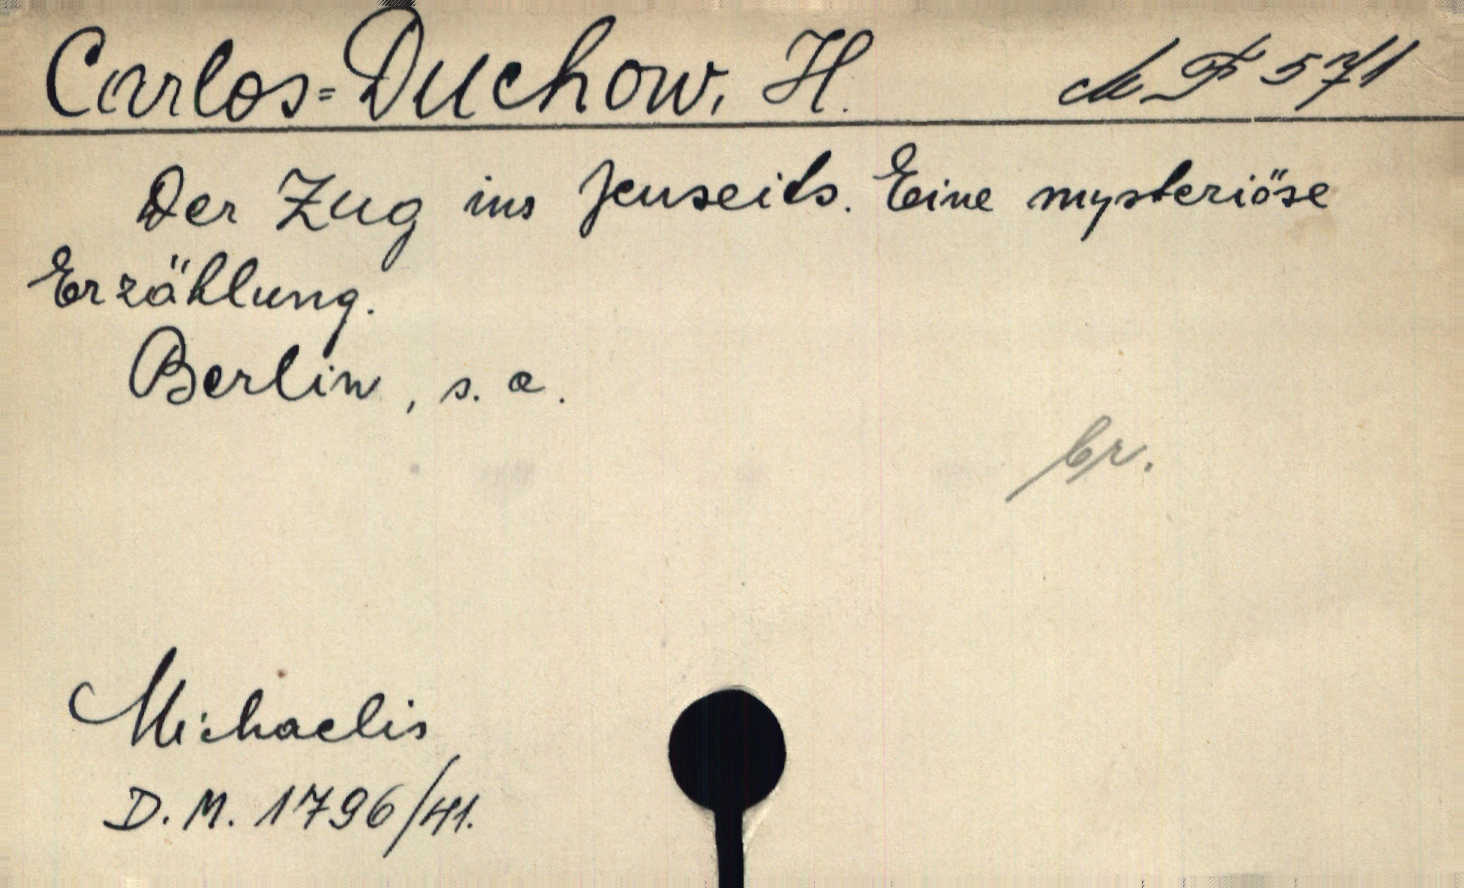 Carlos=Duchow, H. M F 571
Der Zug ins Jenseits. Eine mysteriöse
Erzählung.
Berlin, s. a.
br.
Michaelis
D. M. 1796/41.